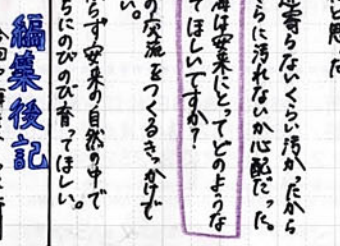 と思った
寄らないくらい汚かったから
らに汚れないか心配だった。
海は安来にとってどのような
てほしいですか?
の交流をつくるきっかけで
い。
らず安来の自然の中で
ちにのびのび育ってほしい。
編集後記